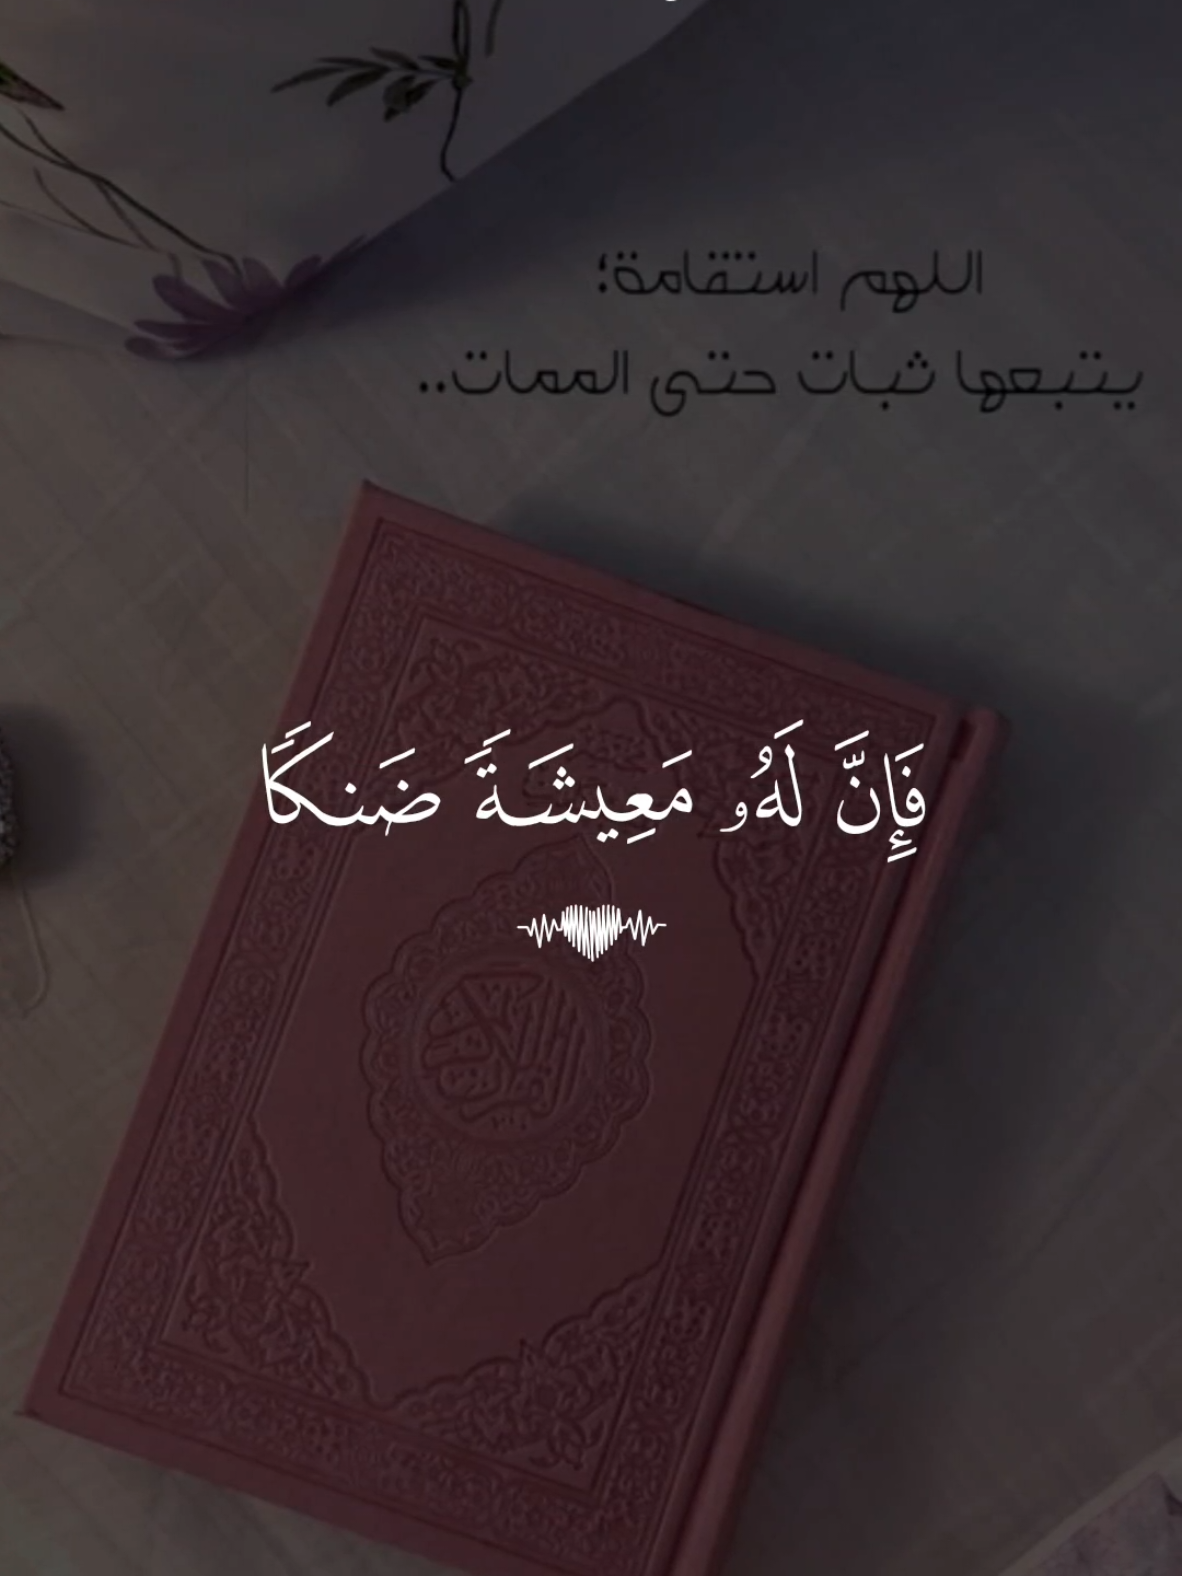 اللهم استقامة؛
يتبعها ثبات حتى الممات..
فَإِنَّ لَهُۥ مَعِيشَةً ضَنكًا
القرآن الكريم